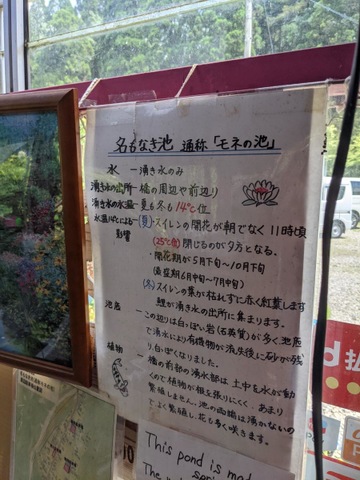 名もなき池 通称「モネの池」
水 ー湧き水のみ
湧き水の出所ー橋の周辺や前辺り
湧き水の水温ー夏も冬も14℃位
水温14℃による影響ー(夏)・スイレンの開花が朝でなく11時頃
(25℃位)閉じるのが夕方となる。
・開花期が5月下旬〜10月下旬
(最盛期6月中旬〜7月中旬)
(冬)・スイレンの葉が枯れずに赤く紅葉します
鯉が湧き水の出所に集まります。
池底ーこの辺りは白っぽい岩(石英質)が多く池底
で湧水により有機物が流失後に砂が残
り白っぽくなりました。
植物ー橋の前部の湧水部は土中を水が動
くので植物が根を張りにくく、あまり
繁殖しません。池の両端は湧かないの
でよく繁殖し、花も多く咲きます。
This pond is made